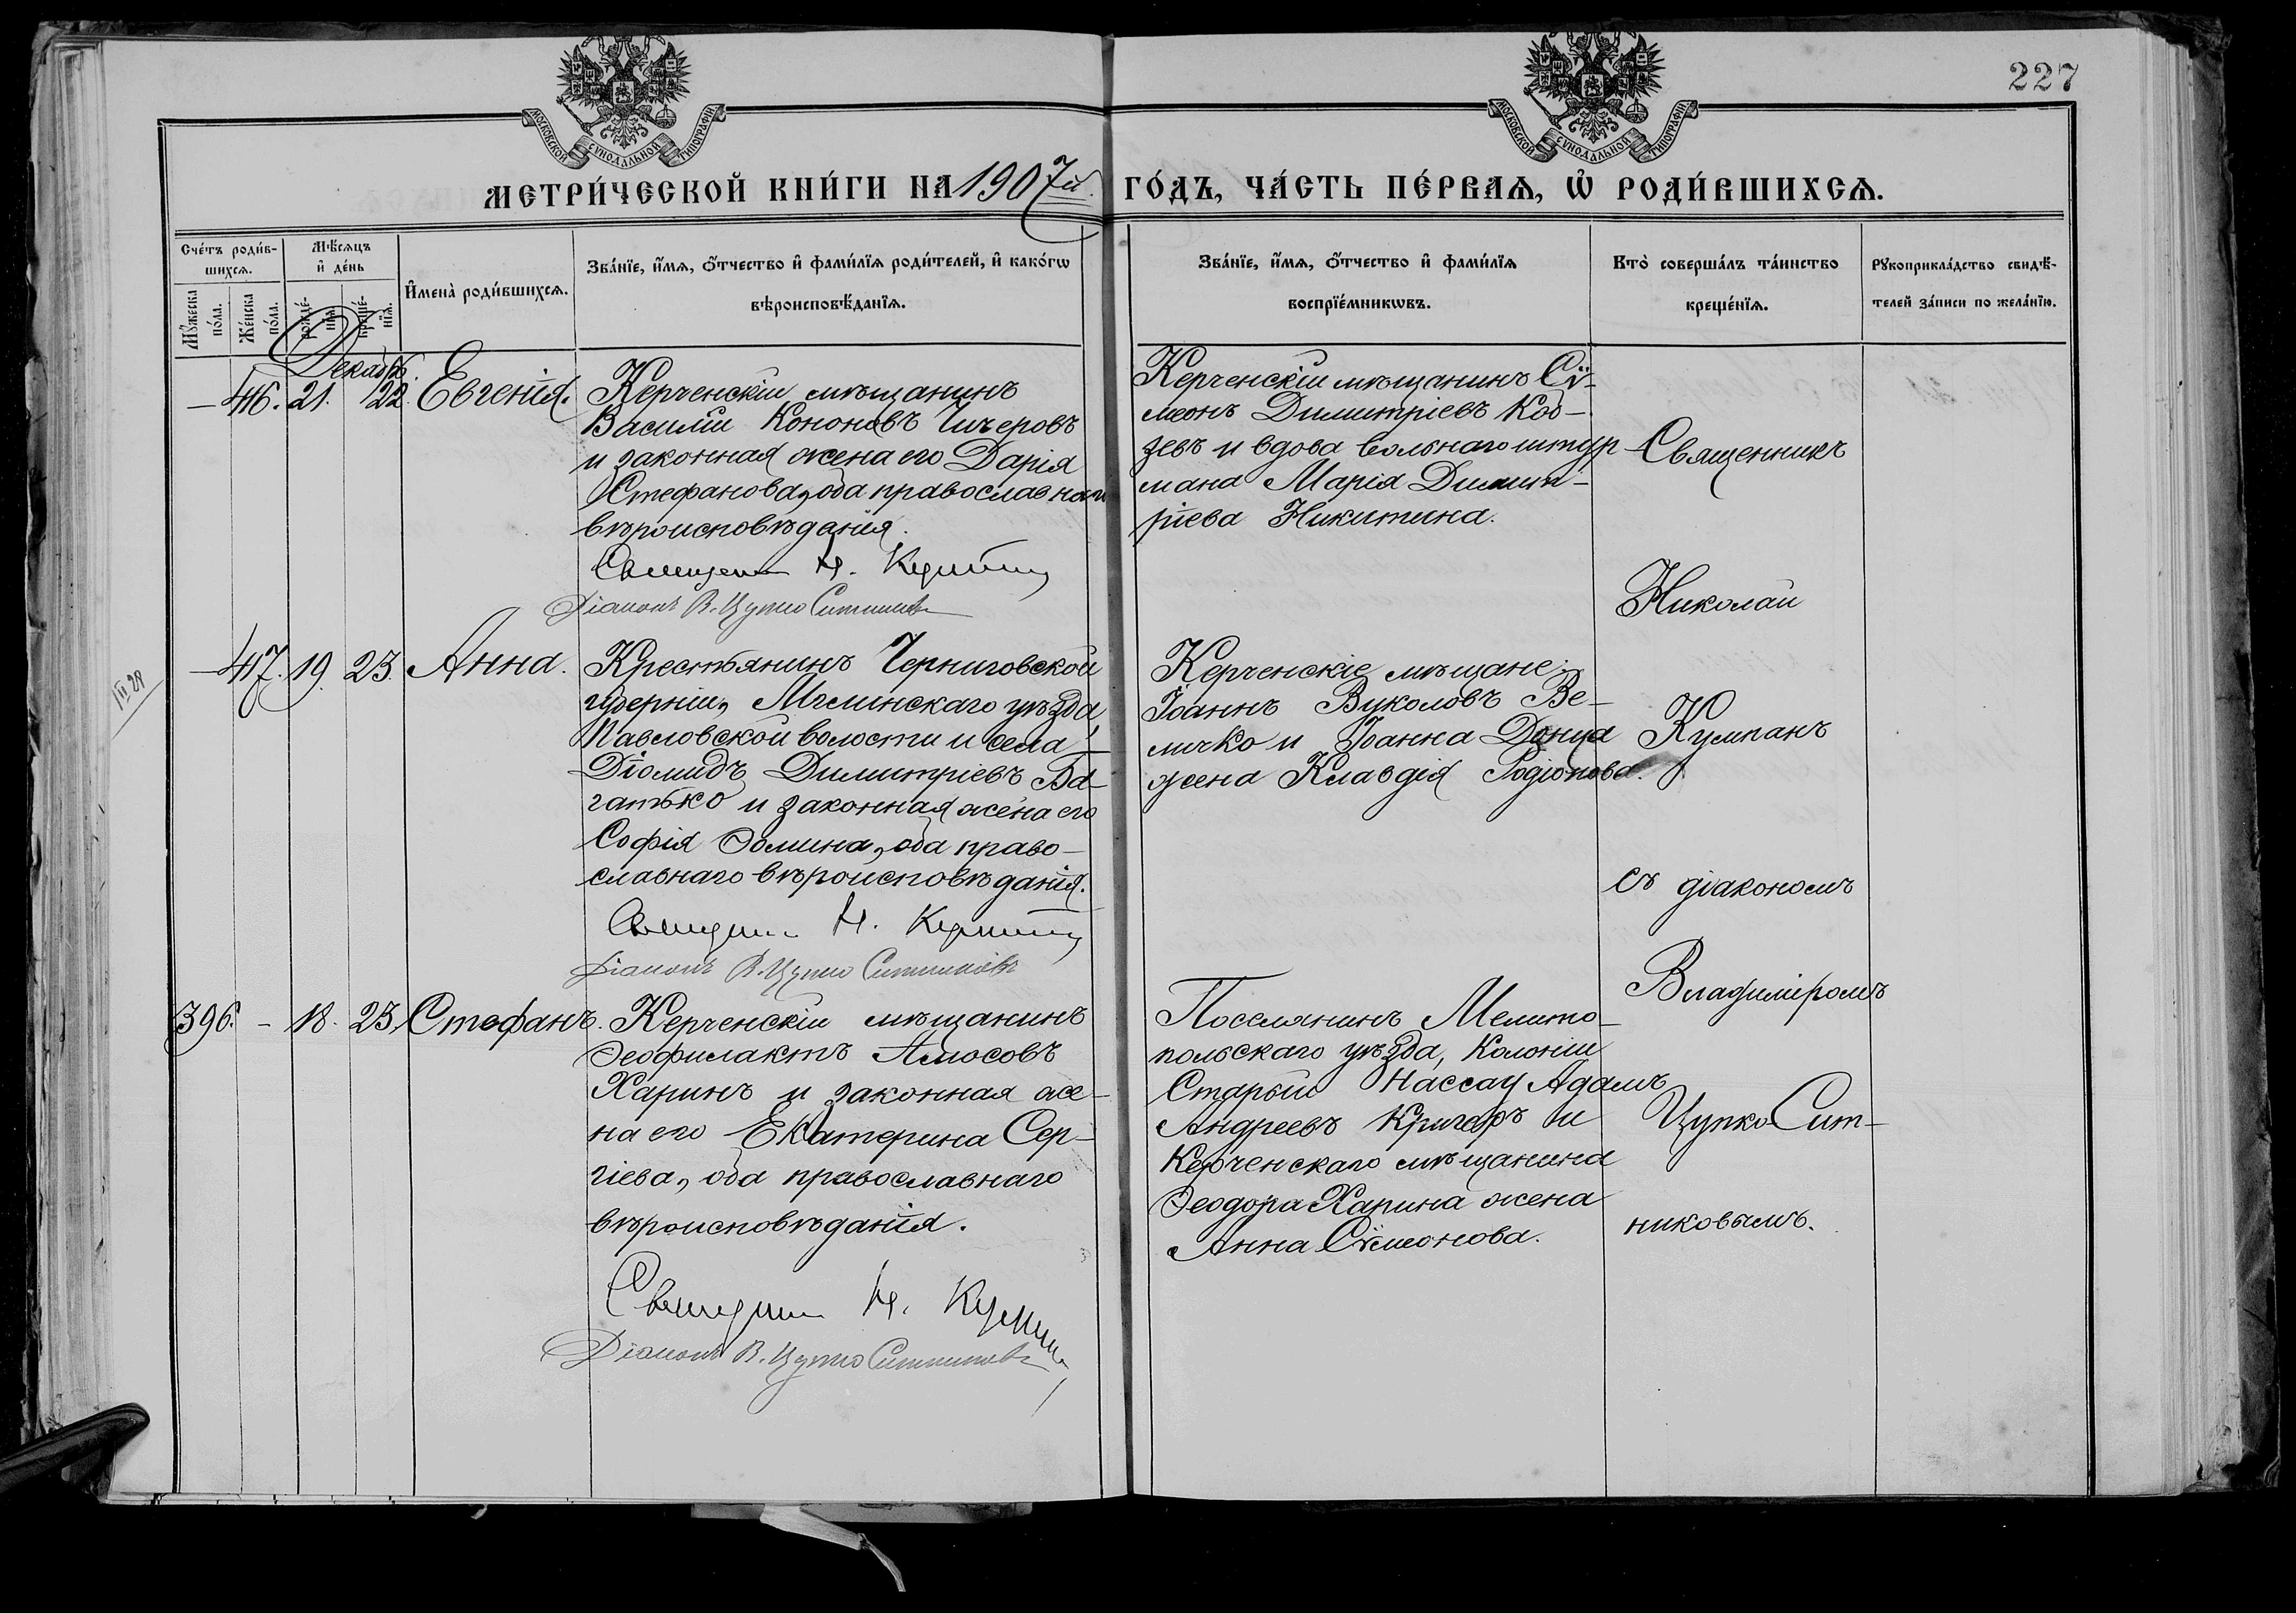 227
МОСКОВСКОЙ СѴНОДАЛЬНОЙ ТИПОГРАФІИ
МОСКОВСКОЙ СѴНОДАЛЬНОЙ ТИПОГРАФІИ
МЕТРИ́ЧЕСКОЙ КНИ́ГИ НА 1907й. ГО́ДЪ, ЧА́СТЬ ПЕ́РВАѦ, Ѡ҆ РОДИ́ВШИХСѦ.
Сче́тъ роди́в-
шихсѧ.
Мꙋ́жеска по́ла.
Же́нска по́ла.
Мѣ́сѧцъ
и҆ де́нь
рожде́-
нїѧ.
креще́-
нїѧ.
И҆мена̀ роди́вшихсѧ.
Зва́нїе, и҆́мѧ, ѻ҆́тчество и҆ фами́лїѧ роди́телей, и҆ како́гѡ
вѣроисповѣ́данїѧ.
Зва́нїе, и҆́мѧ, ѻ҆́тчество и҆ фами́лїѧ
воспрїе́мникѡвъ.
Кто̀ соверша́лъ та́инство
креще́нїѧ.
Рꙋкоприкла́дство свидѣ́-
телей за́писи по жела́нїю.
Декабрь.
— 416. 21. 22. Евгенія.
Керченскій мѣщанинъ
Василій Кононовъ Чичеровъ
и законная жена его Дарія
Стефанова, оба православнаго
вѣроисповѣданія.
Священ Н. Кумпан
Діаконъ В. Цупко Ситников
Керченскій мѣщанинъ Сѵ-
меонъ Димитріевъ Коб-
зевъ и вдова вольнаго штур
мана Марія Димит-
ріева Никитина.
— 417. 19. 23. Анна.
Крестьянинъ Черниговской
губерніи, Мглинскаго уѣзда,
Павловской волости и села
Діомидъ Димитріевъ Ба-
гатько и законная жена его
Софія Ѳомина, оба право-
славнаго вѣроисповѣданія.
Священ Н. Кумпан
Діаконъ В. Цупко Ситниковъ
Керченскіе мѣщане:
Іоаннъ Вуколовъ Ве-
личко и Іоанна Донца
жена Клавдія Родіонова.
396. — 18. 23. Стефанъ.
Керченскій мѣщанинъ
Ѳеофилактъ Амосовъ
Харинъ и законная же-
на его Екатерина Сер-
гіева, оба православнаго
вѣроисповѣданія.
Священ Н. Кумпан
Діаконъ В. Цупко Ситников
Поселянинъ Мелито-
польскаго уѣзда, Колоніи
Старый Нассау Адамъ
Андреевъ Кригеръ и
Керченскаго мѣщанина
Ѳеодора Харина жена
Анна Сѵмеонова.
Священникъ
Николай
Кумпанъ
съ діакономъ
Владиміромъ
Цупко-Сит-
никовымъ.